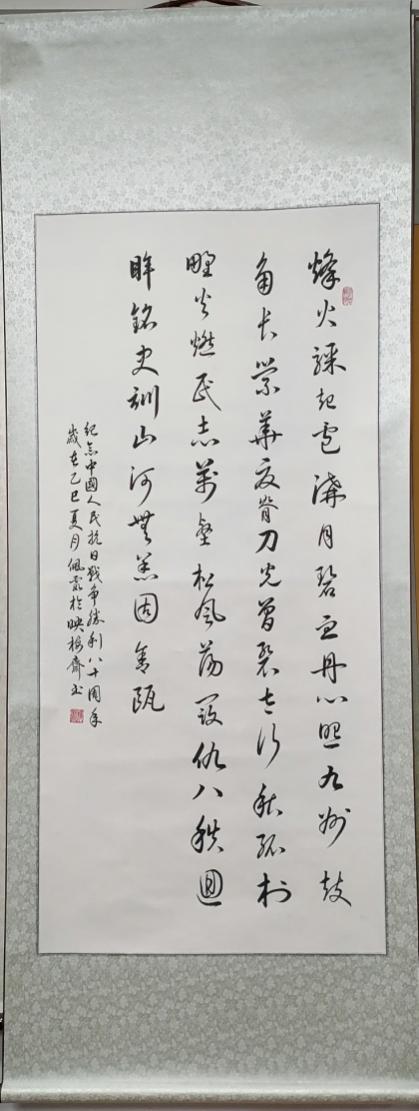 烽火驟起盧溝月碧血丹心照九州鼓
角長縈華夏脊刀光曾裂太行秋孤村
野火燃民志萬壑松風蕩寇仇八秩回
眸銘史訓山河無恙固金甌
紀念中國人民抗日戰爭勝利八十周年
歲在乙巳夏月佩霞於映梅齋書